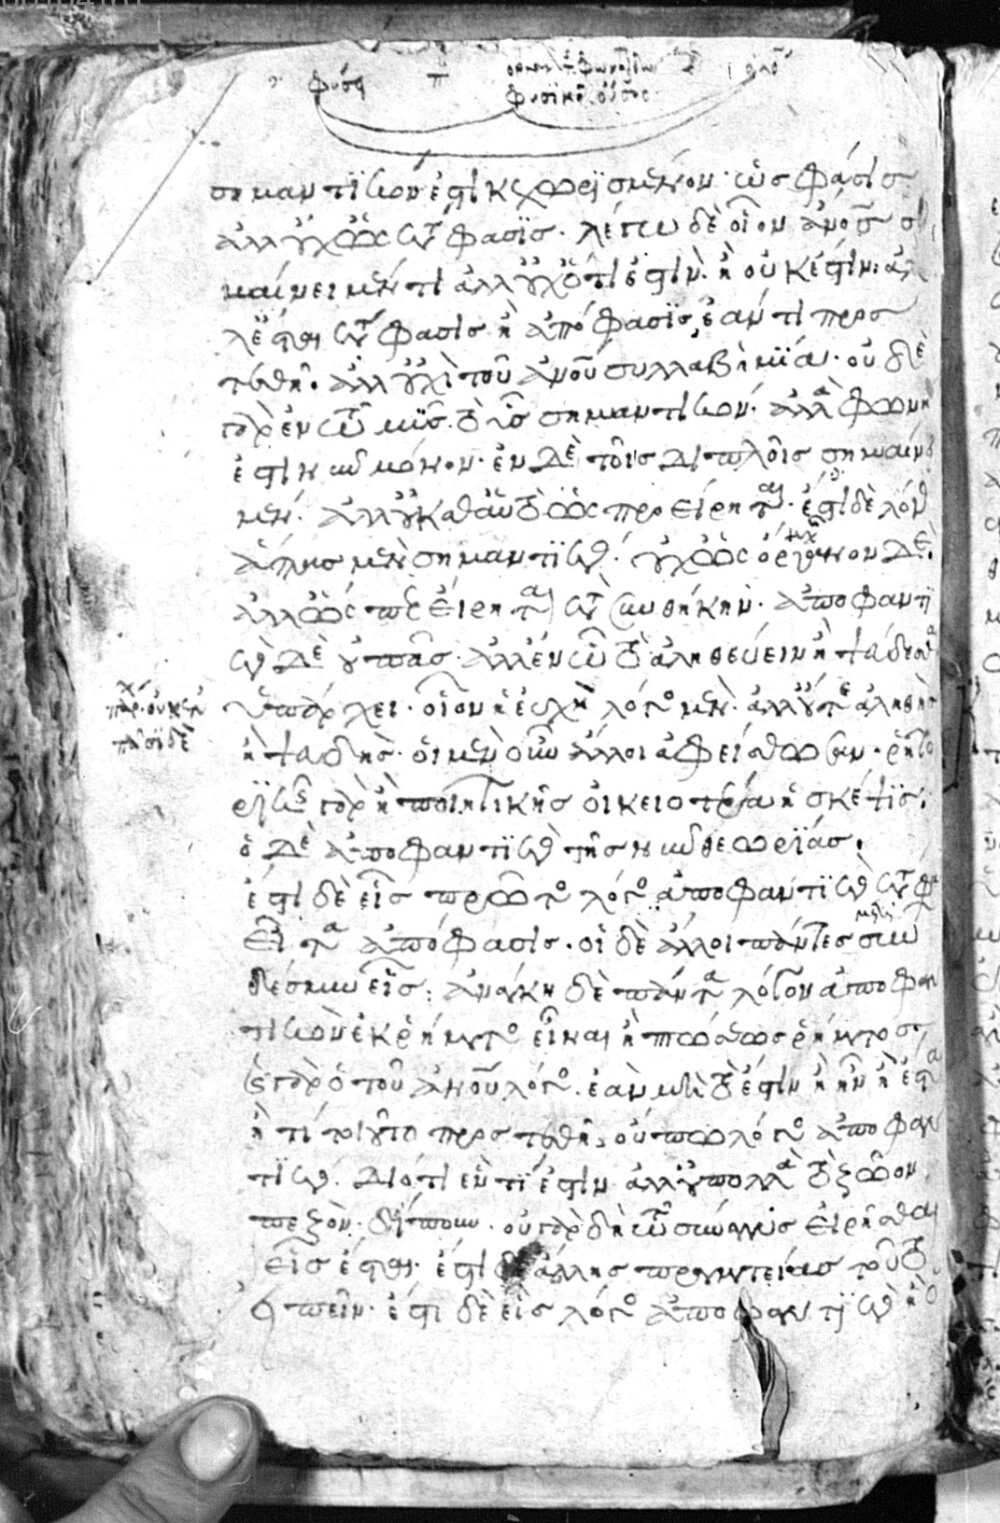 σημαντικόν ἐστι κεχωρισμένον· ὡς φάσις
ἀλλ' οὐχ ὡς κατάφασις· λέγω δὲ οἷον ἄνθρωπος ση
μαίνει μέν τι ἀλλ' οὐχ ὅτι ἐστὶν· ἢ οὐκ ἔστιν· ἀλ
λ' ἔσται κατάφασις ἢ ἀπόφασις, ἐάν τι προσ
τεθῇ· ἀλλ' οὐχὶ τοῦ ἀνθρώπου συλλαβὴ μία· οὐδὲ
γὰρ ἐν τῷ μῦς τὸ υς σημαντικόν· ἀλλὰ φωνή
ἐστι νῦν μόνον· ἐν δὲ τοῖς διπλοῖς σημαίνει
μέν· ἀλλ' οὐ καθ' αὑτὸ ὡς προείρηται· ἔστι δὲ λόγος
ἅπας μὲν σημαντικός· οὐχ ὡς ὄργανον δέ·
ἀλλ' ὡς προείρηται κατὰ συνθήκην· ἀποφαντι
κὸς δὲ οὐ πᾶς· ἀλλ' ἐν ᾧ τὸ ἀληθεύειν ἢ ψεύδεσθαι
ὑπάρχει· οἷον ἡ εὐχὴ λόγος μέν· ἀλλ' οὔτε ἀληθὴς
ἢ ψευδής· οἱ μὲν οὖν ἄλλοι ἀφείσθωσαν· ῥητο
ρικῆς γὰρ ἢ ποιητικῆς οἰκειοτέρα ἡ σκέψις·
ὁ δὲ ἀποφαντικὸς τῆς νῦν θεωρίας·
ἔστι δὲ εἷς πρῶτος λόγος ἀποφαντικὸς κατάφα
εἶτα ἀπόφασις· οἱ δὲ ἄλλοι πάντες συν
δέσμῳ εἷς· ἀνάγκη δὲ πάντα λόγον ἀποφαν
τικὸν ἐκ ῥήματος εἶναι ἢ πτώσεως ῥήματος·
καὶ γὰρ ὁ τοῦ ἀνθρώπου λόγος· ἐὰν μὴ τὸ ἔστιν ἢ ἦν ἢ ἔσται
ἤ τι τοιοῦτο προστεθῇ, οὔπω λόγος ἀποφαν
τικός· διότι ἕν τί ἐστιν ἀλλ' οὐ πολλὰ τὸ ζῷον
πεζὸν δίπουν· οὐ γὰρ δὴ τῷ σύνεγγυς εἰρῆσθαι
εἷς ἔσται· ἔστι δὲ ἄλλης πραγματείας τοῦτο
εἰπεῖν· ἔστι δὲ εἷς λόγος ἀποφαντικὸς ἢ ὁ